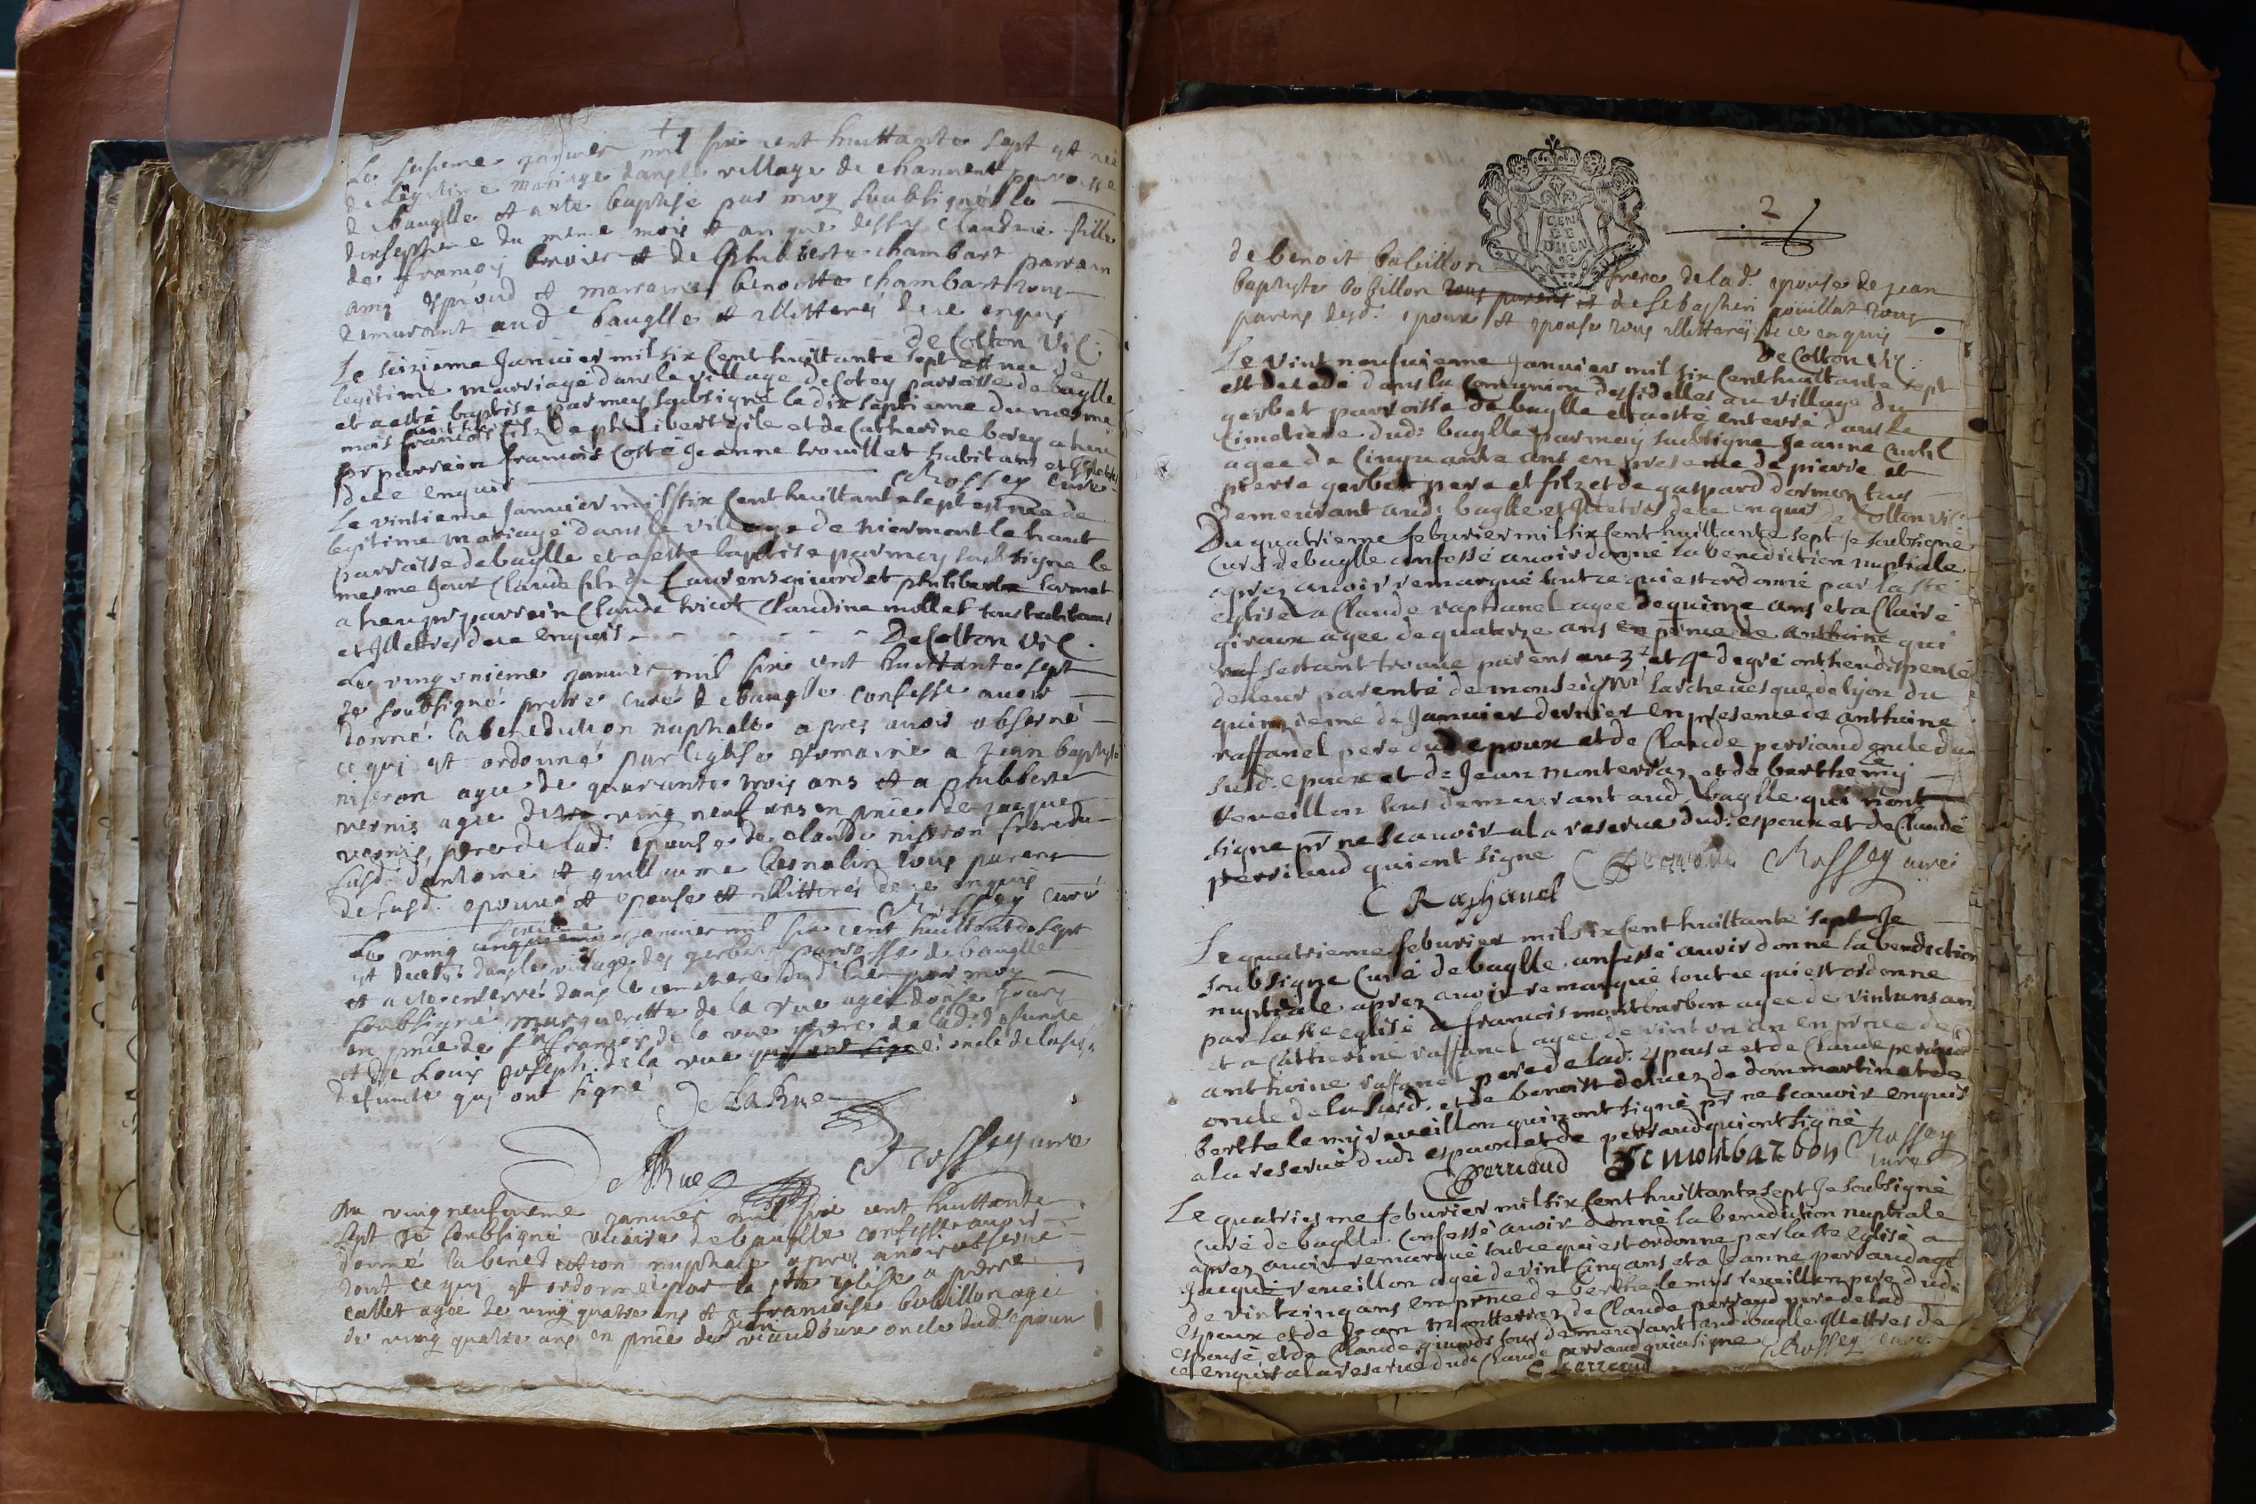 Le sesieme janvier mil six cent huittante sept est née
de Légitime mariage dans le village de channent parroisse
de bauglle et a esté baptisé par moy soubsigné le
dixseptieme du meme mois et an que dessus Claudine fille
de françois et de philiberte chambart parrain
et marraine benoitte chambart tous
demurant aud bauglle et illitterés de ce enquis
De Colton Vic:
Le seizieme Janvier mil six Cent huittante sept est nee de
legitime marriage dans le village de Cotey parroisse de baglle
et a esté baptise par moy soubsigne le dix septieme du mesme
mois francois filz de philibert gile et de Catherine borey a heu
pr parrein francois Coste Jeanne trouillet habitans et
de ce enquis Rossey Curé
Le vintieme Janvier mil six Cent huittante sept est nee de
legitime mariage dans le village de niermont le haut
parroisse de baglle et a este baptise par moy soubsigne le
mesme Jour Claude filz de Laurens giuord et philiberte tormet
a heu pr parrein Claude tricot Claudine mollet tous habitans
et Illettres de ce enquis De Colton Vic.
Le ving unieme janvier mil six cent huittante sept
je soubsigné pretre curé de bauglle confesse avoir
donné la benediction nuptiale apres avoir observé
ce qui est ordonné par l'eglise romaine a jean baptiste
niseron agee de quarante trois ans et a philiberte
vernis agee de ving neuf ans en pnce de jacque
vernis, pere de lad. epouse de claude niseron frere du
susd. d'antoine et guillaume besnolin tous parens
desusd. epoux et epouse et illitterés de ce enquis
Rossey curé
Le ving sixieme janvier mil six cent huittante sept
est decedé dans le village des gerbet parroisse de bauglle
et a este enterré dans le cemetiere dud lieu par moy
soubsigné margueritte de la rue agee d'onse jours
en pnce de sr françois de la rue pere de lad. defuncte
et de Louis joseph de la rue qui ont signé oncle de lasusd.
defuncte qui ont signé
De La Rue
De la Rue Rossey curé
Au ving neufvieme janvier mil six cent huittante
sept je soubsigné vicaire de bauglle confesse avoir
donné la benediction nuptiale apres avoir observé
tout ce qui est ordonné par la ste eglise a pierre
callet agee de ving quatre ans et a françoise bobillon agée
de ving quatre ans en pnce de jean viaudoux oncle dud. epoux
2
GEN
DE
DHEN
de benoit bobillon frere de lad. epouse de jean
baptiste bobillon tous parens et de sebastien pouillat tous
parens desd. epoux et epouse tous illitterés de ce enquis
De Colton Vic.
Le vint neufuieme Janvier mil six Cent huittante sept
est decedé dans la Comunion des fidelles au village du
gerbet parroisse de baglle et a esté enterré dans le
Cimetiere dud: baglle par moy soubsigne Jeanne Curtil
agee de Cinquante ans en presence de pierre et
pierre gerbet pere et filz et de gaspard dormon tous
demeurant aud: baglle et Illetrés de ce enquis De Colton Vic
Du quatrieme feburier mil six Cent huittante sept Je soubsigné
Curé de baglle confesse avoir donné la benediction nuptiale
aprez avoir remarqué tout ce qui est ordonné par la ste
eglise a Claude raphanel agee de quinze ans et a Claire
giroux agee de quatorze ans en pnce de anthoine qui
sestant trouue parens au 3e et 4e degré ont heu dispence
de leur parenté de monseigr larcheuesque de lyon du
quinzieme de Janvier dernier en presence de anthoine
raffanel pere dud epoux et de Claude perriaud oncle du
susd. epoux et de Jean monterraz et de berthelemy
Reveillon tous demeurant aud. baglle qui n'ont
signe pr ne scauoir a la reserue dud: espoux et de Claude
perriaud qui ont signe Perriaud Rossey curé
C Raphanel
Le quatrieme feburier mil six Cent huittante sept Je
soubsigne Curé de baglle confessé auoir donné la benediction
nuptiale aprez auoir remarqué tout ce qui est ordonne
par la ste eglise a francois montbarbon agee de vint uns an
et a Catherine raffanel agee de vint un an en pnce de
anthoine raffanel pere de lad: espouse et de Claude perriaud
oncle de la susd: et de benoist deluez de dommartin et de
berthelemy reveillon qui n'ont signé pr ne scauoir enquis
a la reserue dud: espoux et de perraud qui ont signé
Perriaud Fc montbarbon Rossey curé
Le quatriesme feburier mil six Cent huittante sept Je soubsigné
Curé de baglle Confesse auoir donné la benediction nuptiale
aprez auoir remarqué tout ce qui est ordonne par la ste Eglise a
Jacque reveillon agée de vint Cinq ans et a Jeanne perraud agee
de vint cinq ans en pnce de berthelemy reveillon pere dud:
espoux et de Jean montterraz de Claude perraud pere de lad
espouse et de Claude giuord tous demeurant aud baglle Illettres de
ce enquis a la reserue dud: Claude perraud qui a signe Rossey curé
C perraud